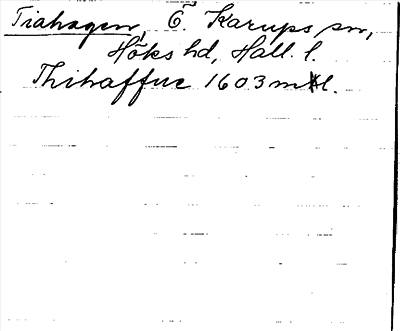 Tiahagen, Ö. Karups sn,
Höks hd, Hall. l.
Thihaffue 1603 mtl.